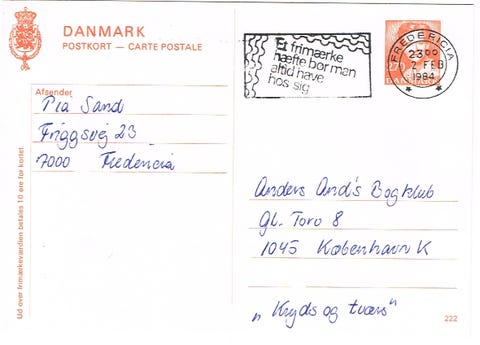 DANMARK
POSTKORT — CARTE POSTALE
Et frimærke
hæfte bør man
altid have
hos sig
FREDERICIA
2300
2 FEB
1984
270
DANMARK
Afsender
Pia Sand
Friggsvej 23
7000 Fredericia
Anders And's Bogklub
Gl. Torv 8
1045 København K
„Kryds og tværs"
Ud over frimærkeværdien betales 10 øre for kortet
222